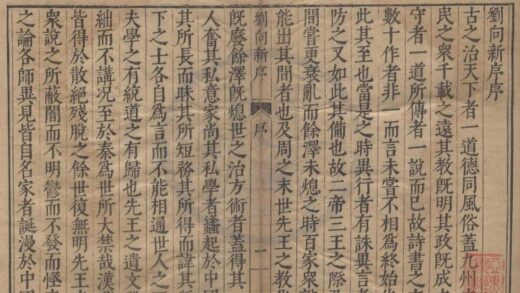 劉向新序序
古之治天下者一道德同風俗蓋九州
民之衆千載之遠其教旣明其政旣成
守者一道所傳者一說而已故詩書之
數十作者非一而言未嘗不相爲終始
此其至也當是之時異行者有誅異言
防之又如此其備也故二帝三王之際
間嘗更衰亂而餘澤未熄之時百家衆
能出其間者也及周之末世先王之教
劉向新序
序
一
旣廢餘澤旣熄世之治方術者蓋得其
人奮其私意家尚其私學者蠭起於中
其所長而昧其所短務其所得而諱其
下之士各自爲言而不能相通世人之
夫學之有統道之有歸也先王之遺文
絀而不講況至於秦爲世所大禁哉漢
皆得於散絕殘脫之餘世復無明先王
衆說之所蔽闇而不明鬱而不發而怪
之論各師異見皆自名家者誕漫於中